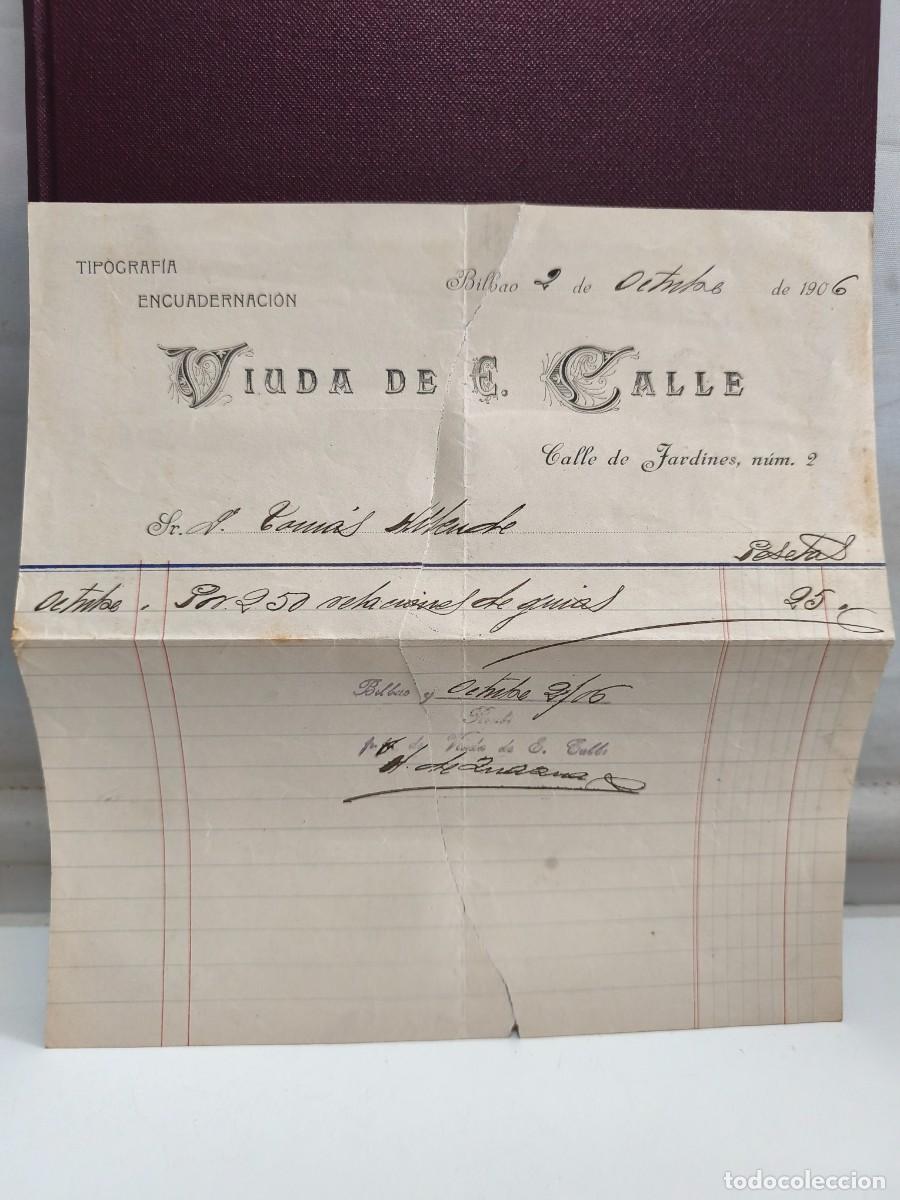 TIPOGRAFÍA
ENCUADERNACIÓN
Bilbao 2 de Octubre de 1906
VIUDA DE E. CALLE
Calle de Jardines, núm. 2
Sr. Dn Tomás Allende
Pesetas
Octubre . Por 250 relaciones de guias 25 "
Bilbao y Octubre 2/06
Recibí
p. p. de Viuda de E. Calle
todocoleccion